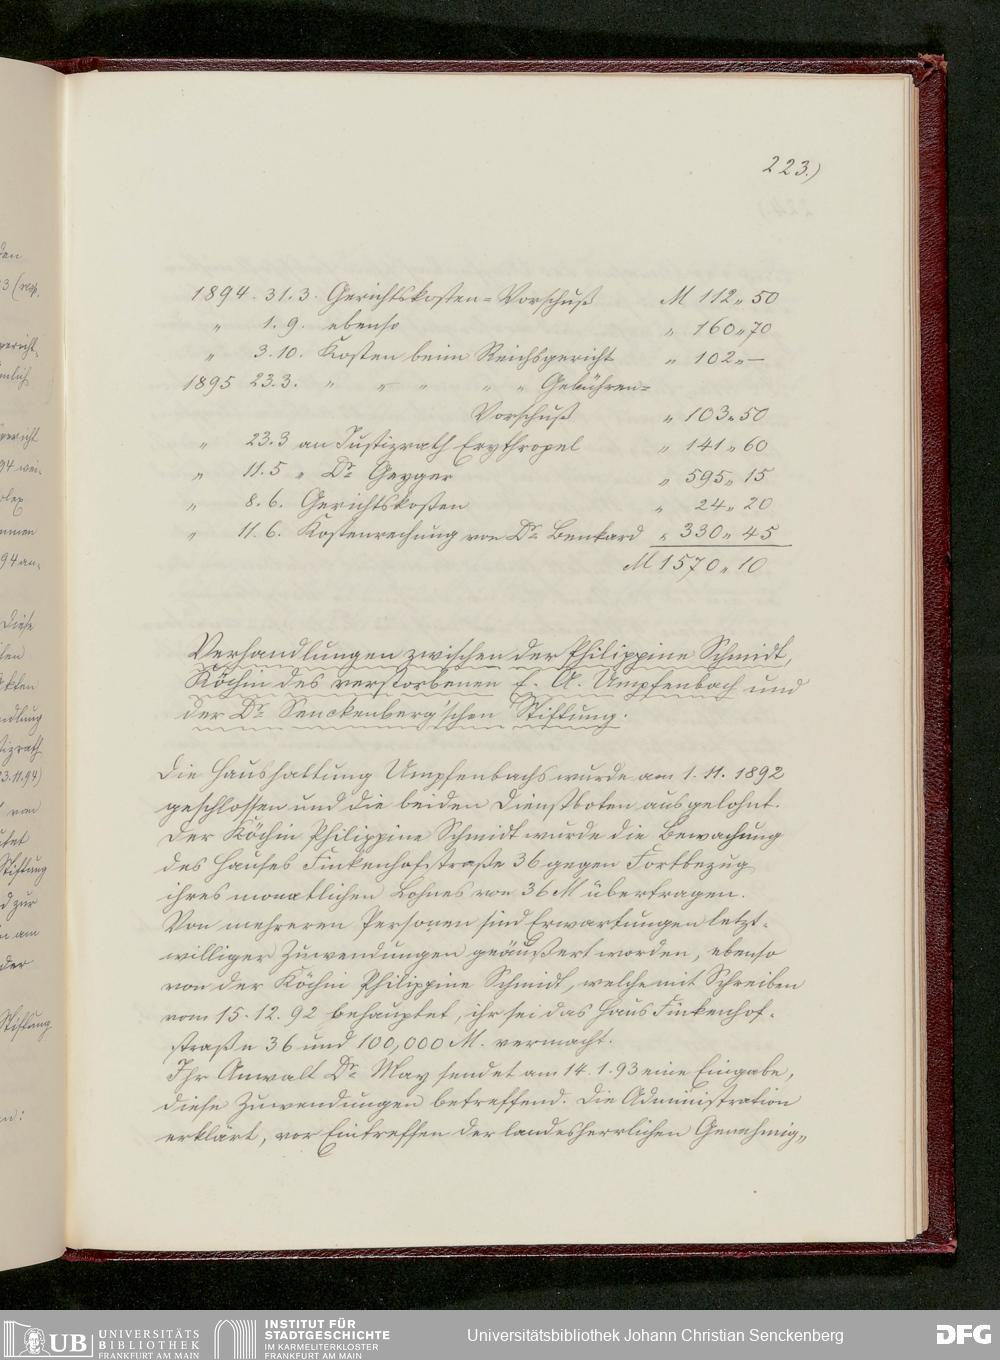 223.)
1894. 31.3. Gerichtskosten-Vorschuß M 112,, 50
" 1.9. ebenso " 160,,70
" 3.10. Kosten beim Reichsgericht " 102,,—
1895 23.3. " " " " " Gebühren-
Vorschuß " 103,,50
" 23.3 an Justizrath Erythropel " 141,,60
" 11.5 " Dr. Geyger " 595,,15
" 8.6. Gerichtskosten " 24,,20
" 11.6. Kostenrechnung von Dr. Benkard " 330,,45
M 1570,,10
Verhandlungen zwischen der Philippine Schmidt,
Köchin des verstorbenen E. A. Umpfenbach und
der Dr. Senckenberg'schen Stiftung.
Die Haushaltung Umpfenbachs wurde am 1.11.1892
geschlossen und die beiden Dienstboten ausgelohnt.
Der Köchin Philippine Schmidt wurde die Bewachung
des Hauses Finkenhofstraße 36 gegen Fortbezug
ihres monatlichen Lohnes von 36 M übertragen.
Von mehreren Personen sind Erwartungen letzt-
williger Zuwendungen geäußert worden, ebenso
von der Köchin Philippine Schmidt, welche mit Schreiben
vom 15.12.92 behauptet, ihr sei das Haus Finkenhof-
straße 36 und 100,000 M. vermacht.
Ihr Anwalt Dr. May sendet am 14.1.93 eine Eingabe,
diese Zuwendungen betreffend. Die Administration
erklärt, vor Eintreffen der landesherrlichen Genehmig-
UB UNIVERSITÄTS
BIBLIOTHEK
FRANKFURT AM MAIN
INSTITUT FÜR
STADTGESCHICHTE
IM KARMELITERKLOSTER
FRANKFURT AM MAIN
Universitätsbibliothek Johann Christian Senckenberg
DFG